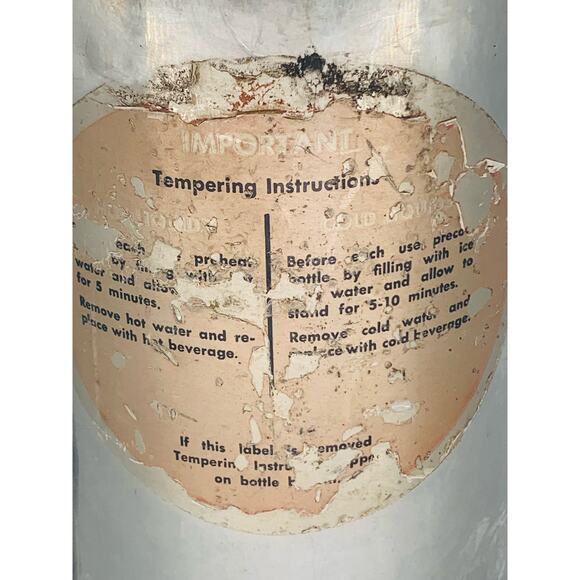 IMPORTANT
Tempering Instructions
COLD
each preheat
by with
water and allow
for 5 minutes.
Remove hot water and re-
place with hot beverage.
Before each use, precool
bottle by filling with ice
water and allow to
stand for 5-10 minutes.
Remove cold water and
replace with cold beverage.
If this label is removed
Tempering
on bottle